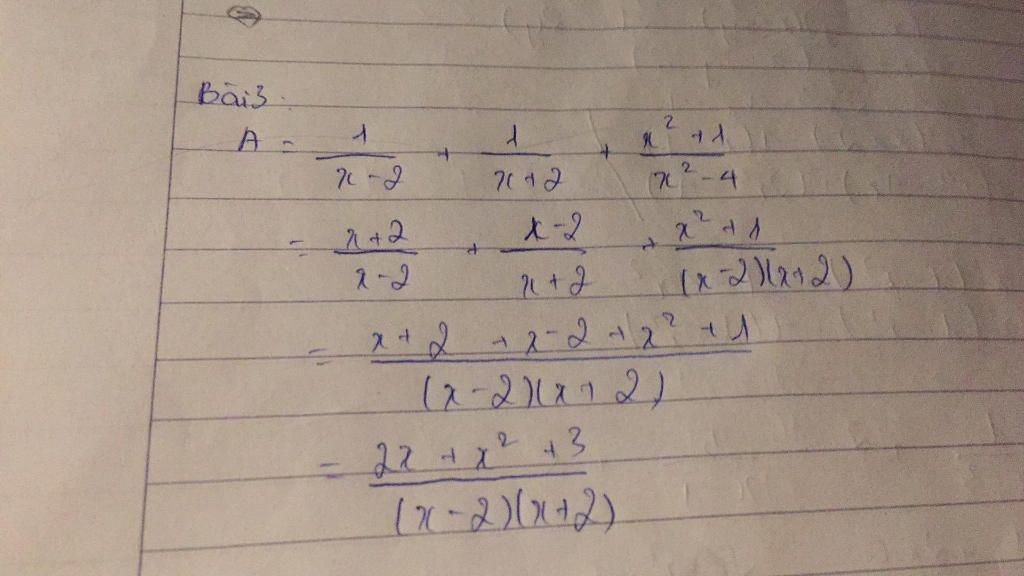 Bài 3:
A = 1/(x-2) + 1/(x+2) + (x²+1)/(x²-4)
= (x+2)/(x-2) + (x-2)/(x+2) + (x²+1)/((x-2)(x+2))
= (x+2+x-2+x²+1)/((x-2)(x+2))
= (2x+x²+3)/((x-2)(x+2))